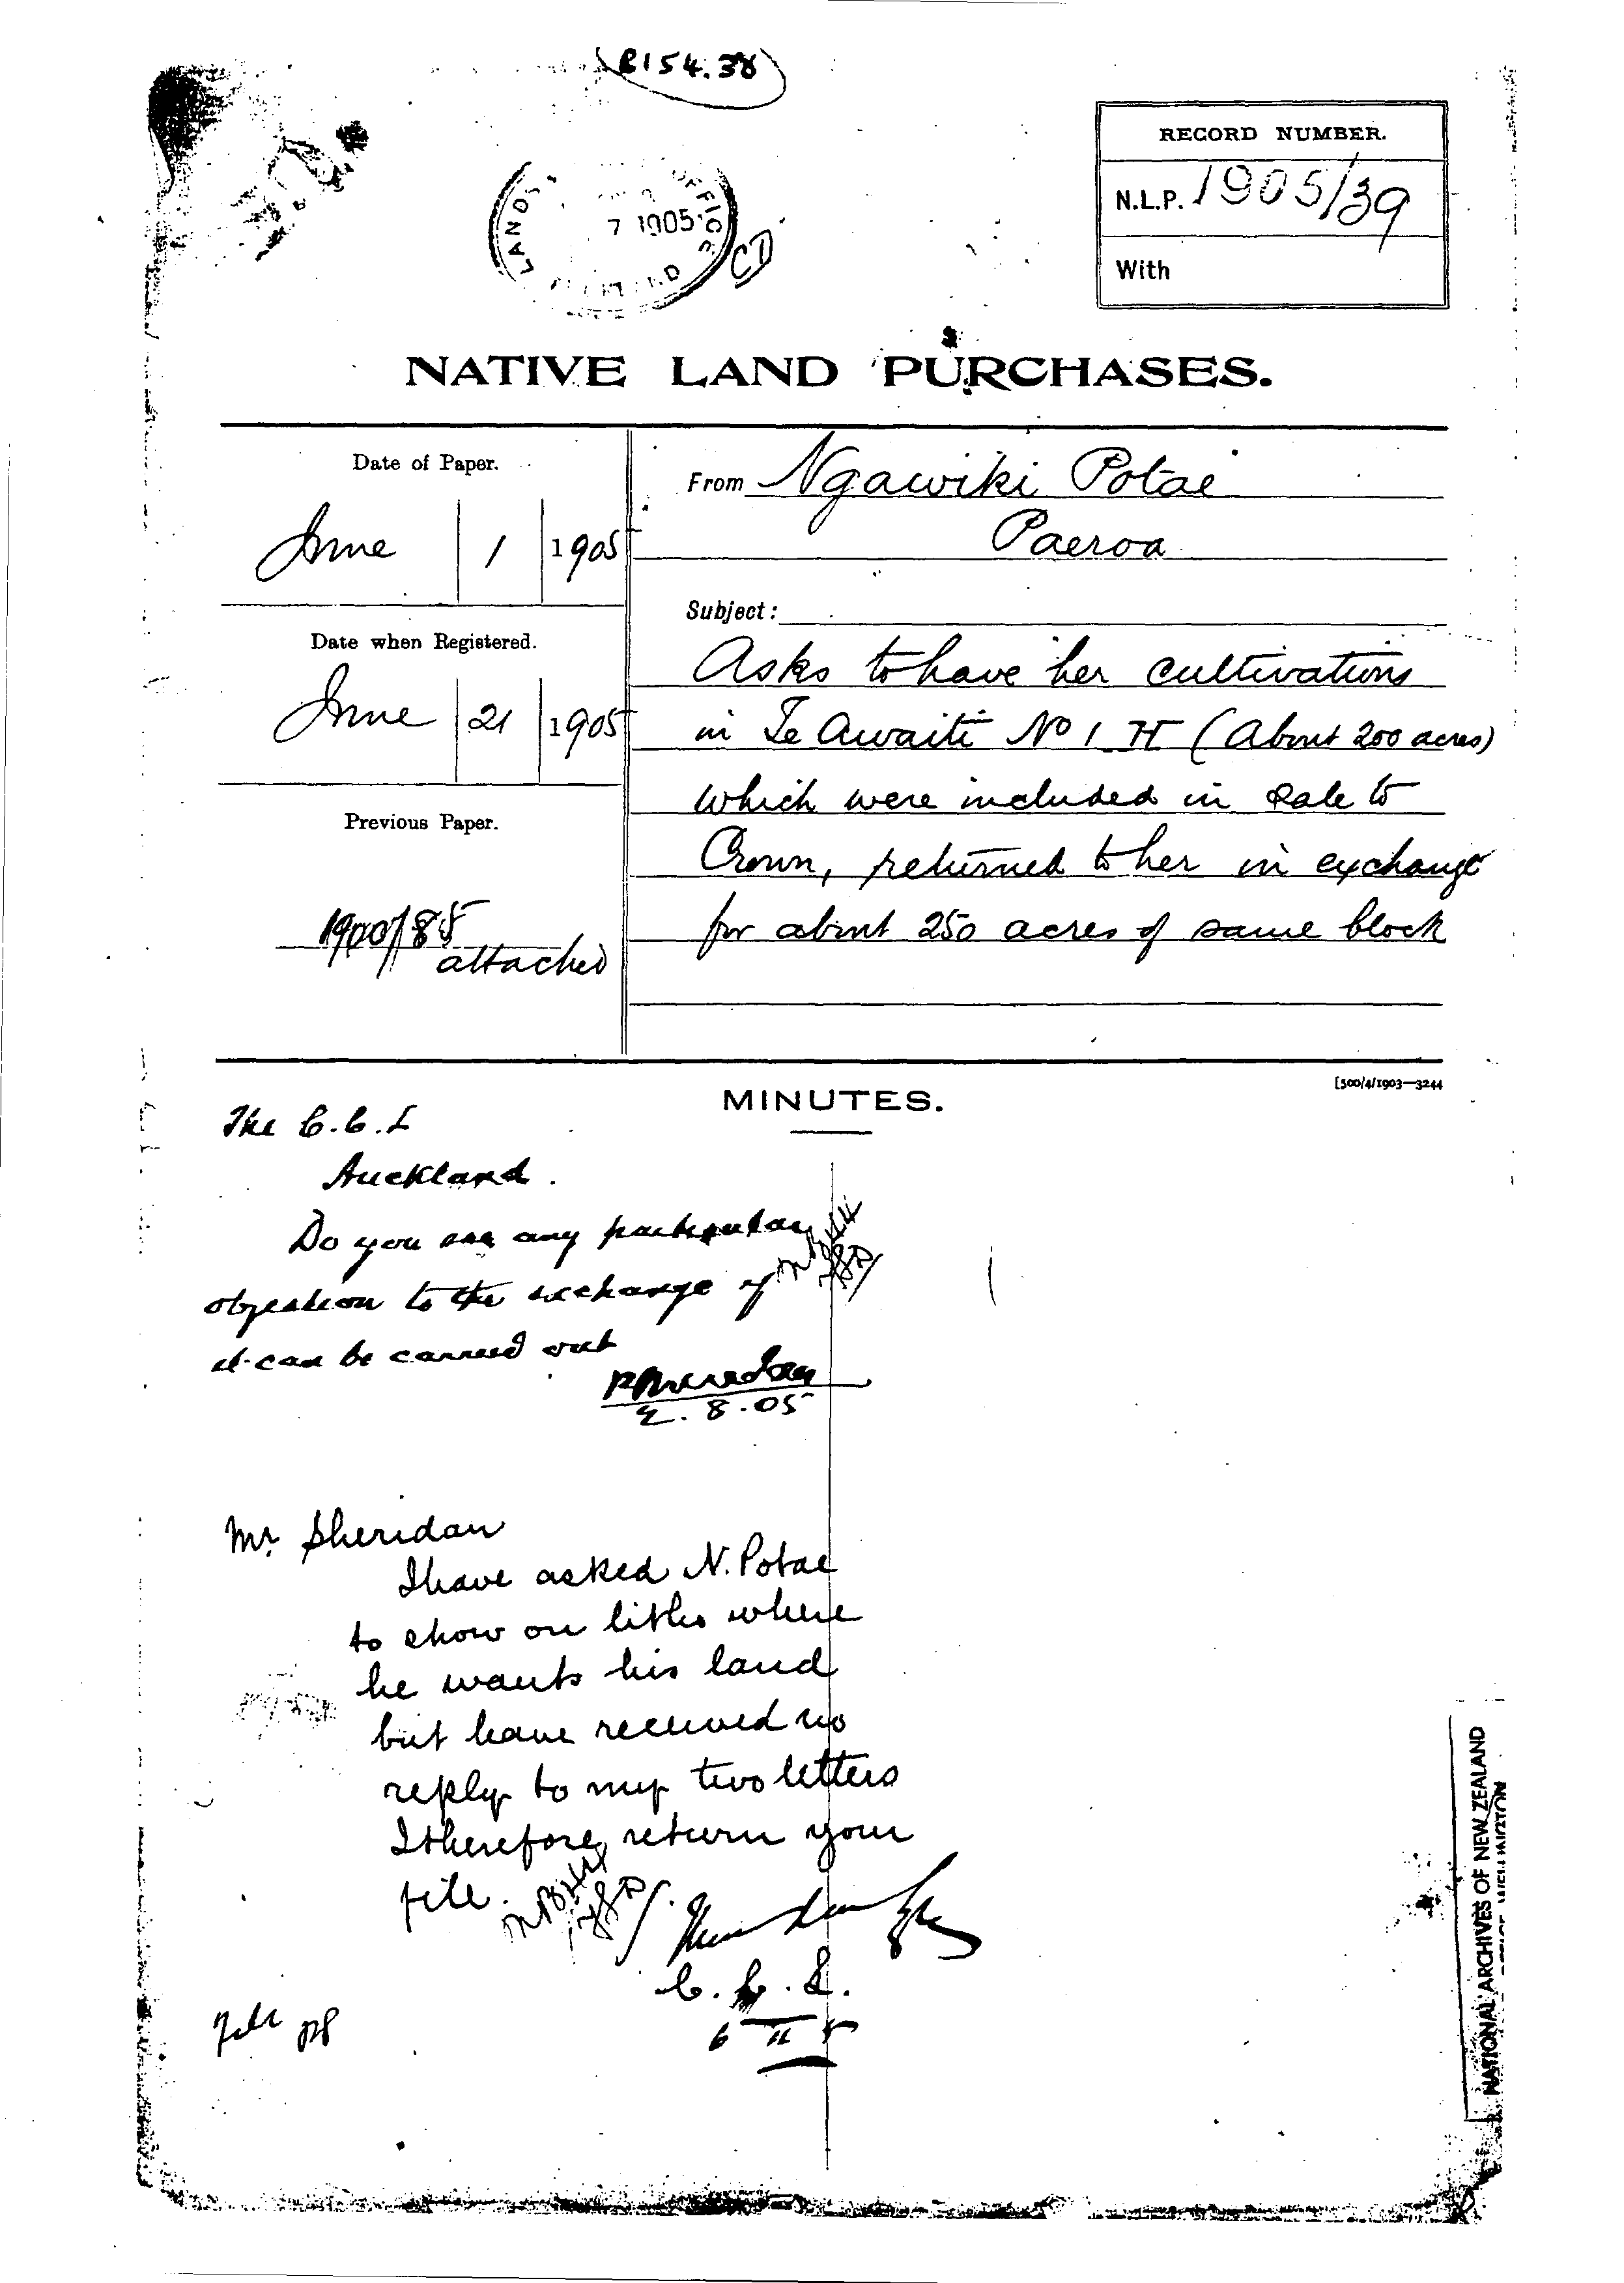 B154.38
RECORD NUMBER.
N.L.P. 1905/39
With
LANDS OFFICE
7 1905
CD
NATIVE LAND PURCHASES.
Date of Paper.
June 1 1905
Date when Registered.
June 21 1905
Previous Paper.
1900/85
attached
From Ngawiki Potae
Paeroa
Subject:
Asks to have her cultivations
in Te Awaiti No 1 H (About 200 acres)
which were included in sale to
Crown, returned to her in exchange
for about 250 acres of same block
[500/4/1903—3244
MINUTES.
The C.C.L
Auckland.
Do you see any particular
objection to the exchange if
it can be carried out
PSheridan
2.8.05
Mr Sheridan
I have asked N. Potae
to show on litho where
he wants his land
but have received no
reply to my two letters
I therefore return your
file.
C.C.L.
6 11 5
File PS
NATIONAL ARCHIVES OF NEW ZEALAND